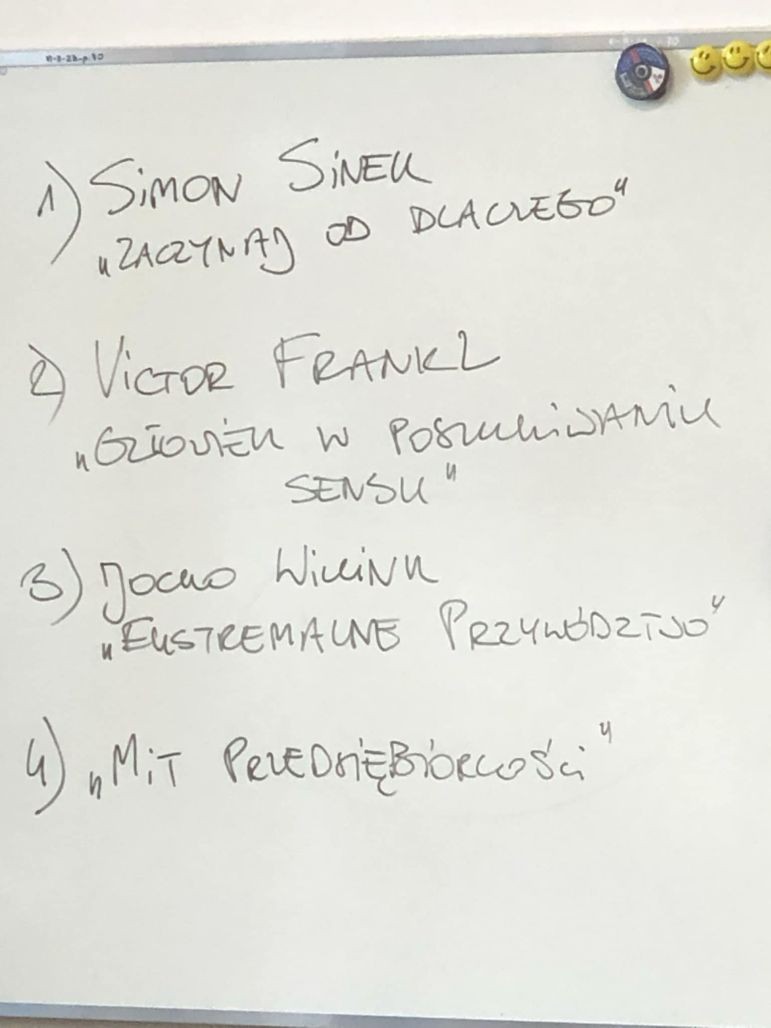 1) SIMON SINEK
„ZACZYNAJ OD DLACZEGO"
2) VICTOR FRANKL
„CZŁOWIEK W POSZUKIWANIU
SENSU"
3) JOCKO WILLINK
„EKSTREMALNE PRZYWÓDZTWO"
4) „MIT PRZEDSIĘBIORCZOŚCI"